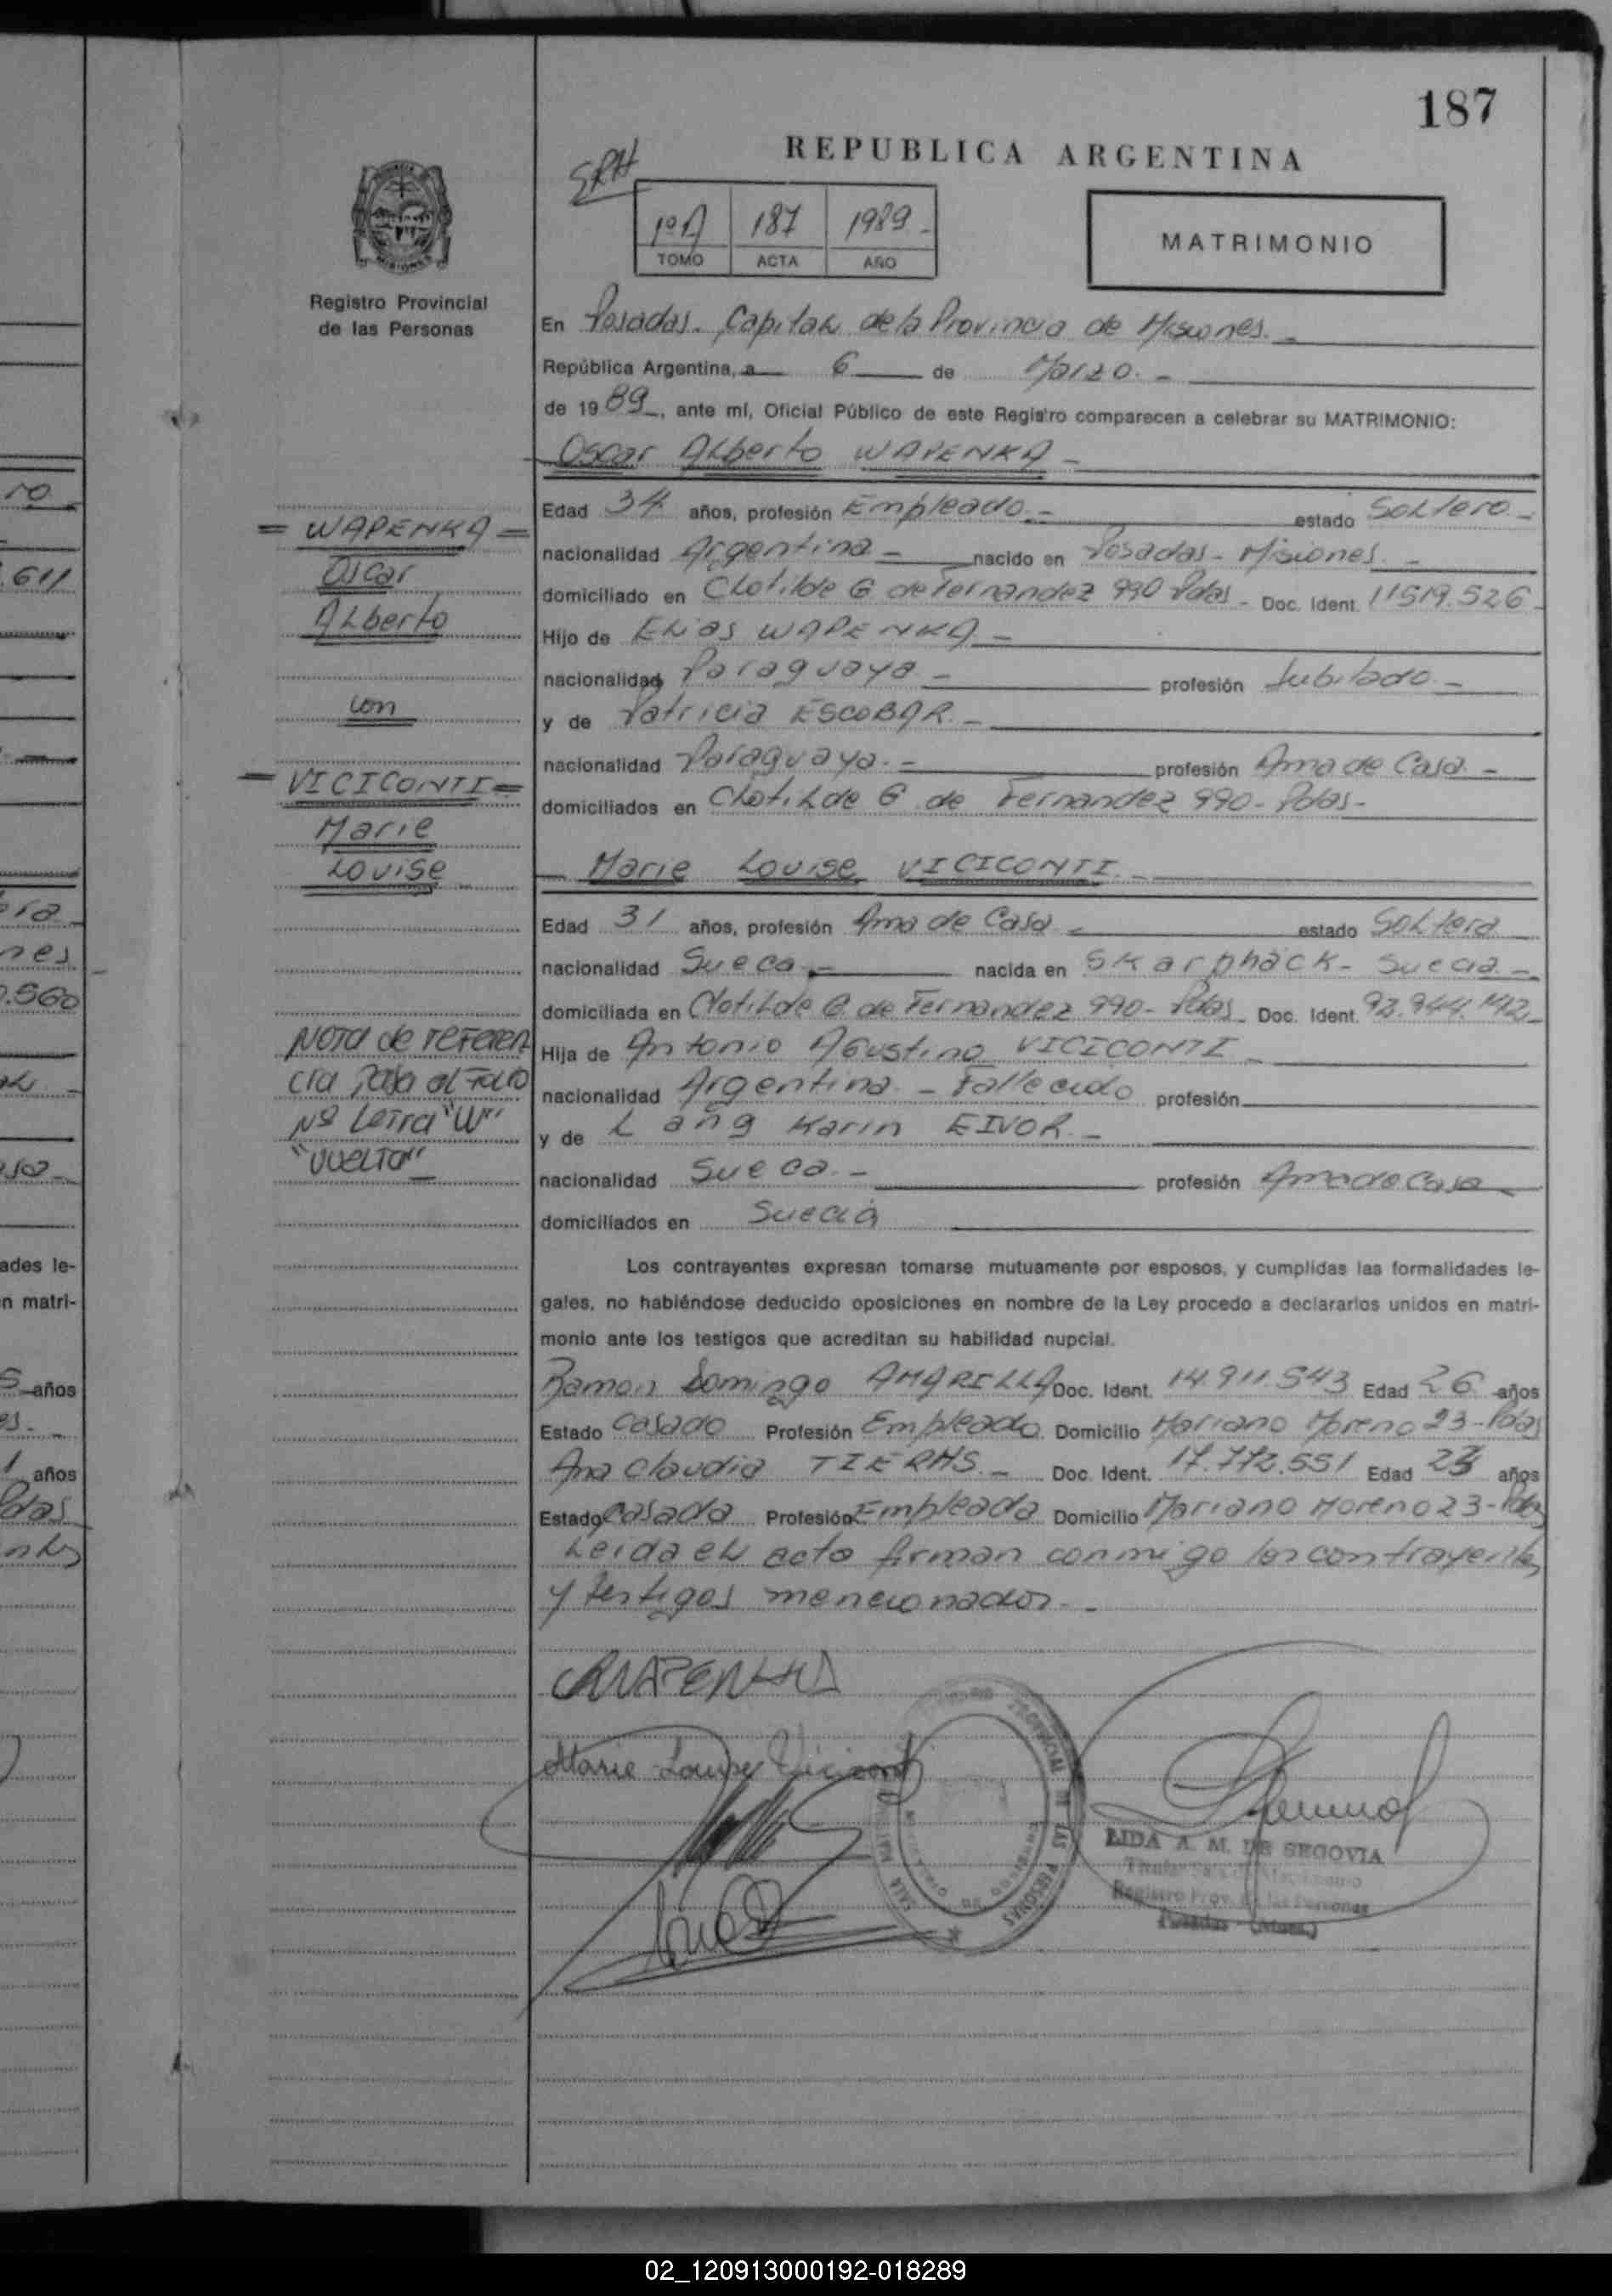 187
REPUBLICA ARGENTINA
1º A 187 1989
TOMO ACTA AÑO
MATRIMONIO
Registro Provincial
de las Personas
En Posadas. Capital de la Provincia de Misiones.
República Argentina, a 6 de Marzo.
de 1989, ante mí, Oficial Público de este Registro comparecen a celebrar su MATRIMONIO:
Oscar Alberto WAPENKA
Edad 34 años, profesión Empleado. estado Soltero
nacionalidad Argentina nacido en Posadas - Misiones.
domiciliado en Clotilde G de Fernandez 990 Pdas - Doc. Ident. 11519.526
Hijo de Elias WAPENKA
nacionalidad Paraguaya profesión Jubilado
y de Patricia ESCOBAR.
nacionalidad Paraguaya. profesión Ama de Casa
domiciliados en Clotilde G de Fernandez 990 - Pdas -
Marie Louise VICICONTI.
Edad 31 años, profesión Ama de Casa estado Soltera
nacionalidad Sueca nacida en Skarphäck - Suecia
domiciliada en Clotilde G. de Fernandez 990 - Pdas Doc. Ident. 92.944.142
Hija de Antonio Agustino VICICONTI
nacionalidad Argentina - Fallecido profesión
y de Lang Karin EIVOR.
nacionalidad Sueca. profesión Ama de Casa
domiciliados en Suecia
Los contrayentes expresan tomarse mutuamente por esposos, y cumplidas las formalidades le-
gales, no habiéndose deducido oposiciones en nombre de la Ley procedo a declararlos unidos en matri-
monio ante los testigos que acreditan su habilidad nupcial.
Ramon Domingo AMARILLA Doc. Ident. 14.911.543 Edad 26 años
Estado Casado Profesión Empleado Domicilio Mariano Moreno 23 - Pdas
Ana Claudia TIERHS. Doc. Ident. 17.772.551 Edad 23 años
Estado Casada Profesión Empleada Domicilio Mariano Moreno 23 - Pdas
Leida el acto firman conmigo los contrayentes
y testigos mencionados.
= WAPENKA =
Oscar
Alberto
con
= VICICONTI =
Marie
Louise
Nota de referen
cia pasa al Folio
Nº Letra "W"
"VUELTA"
WAPENKA
Marie Louise Viciconti
LIDA A. M. DE SEGOVIA
Registro Prov. de las Personas
Posadas - (Mnes.)
ro
.611
ra
nes
.560
ades le-
n matri-
5 años
1 años
Pdas
02_120913000192-018289